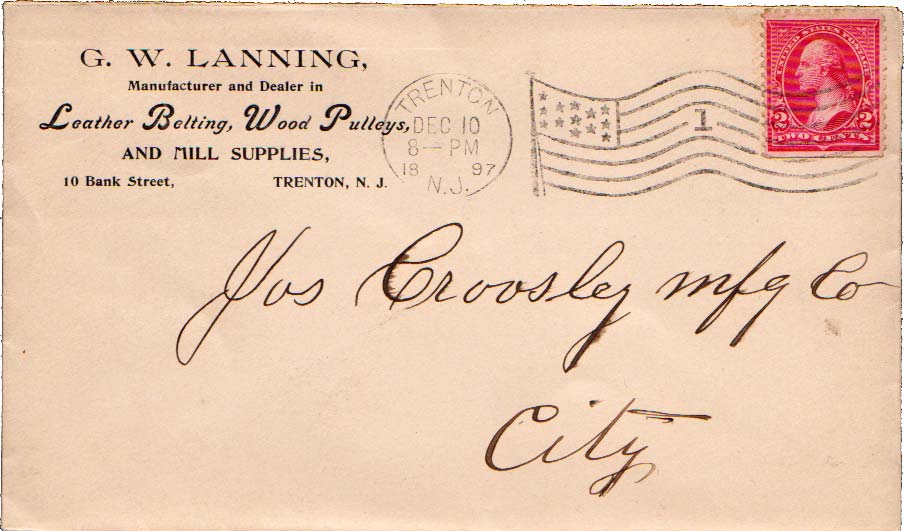 G. W. LANNING,
Manufacturer and Dealer in
Leather Belting, Wood Pulleys,
AND MILL SUPPLIES,
10 Bank Street, TRENTON, N. J.
TRENTON
DEC 10
8 — PM
18 97
N.J.
1
UNITED STATES POSTAGE
2 2
TWO CENTS
Jos Croosley mfg Co
City